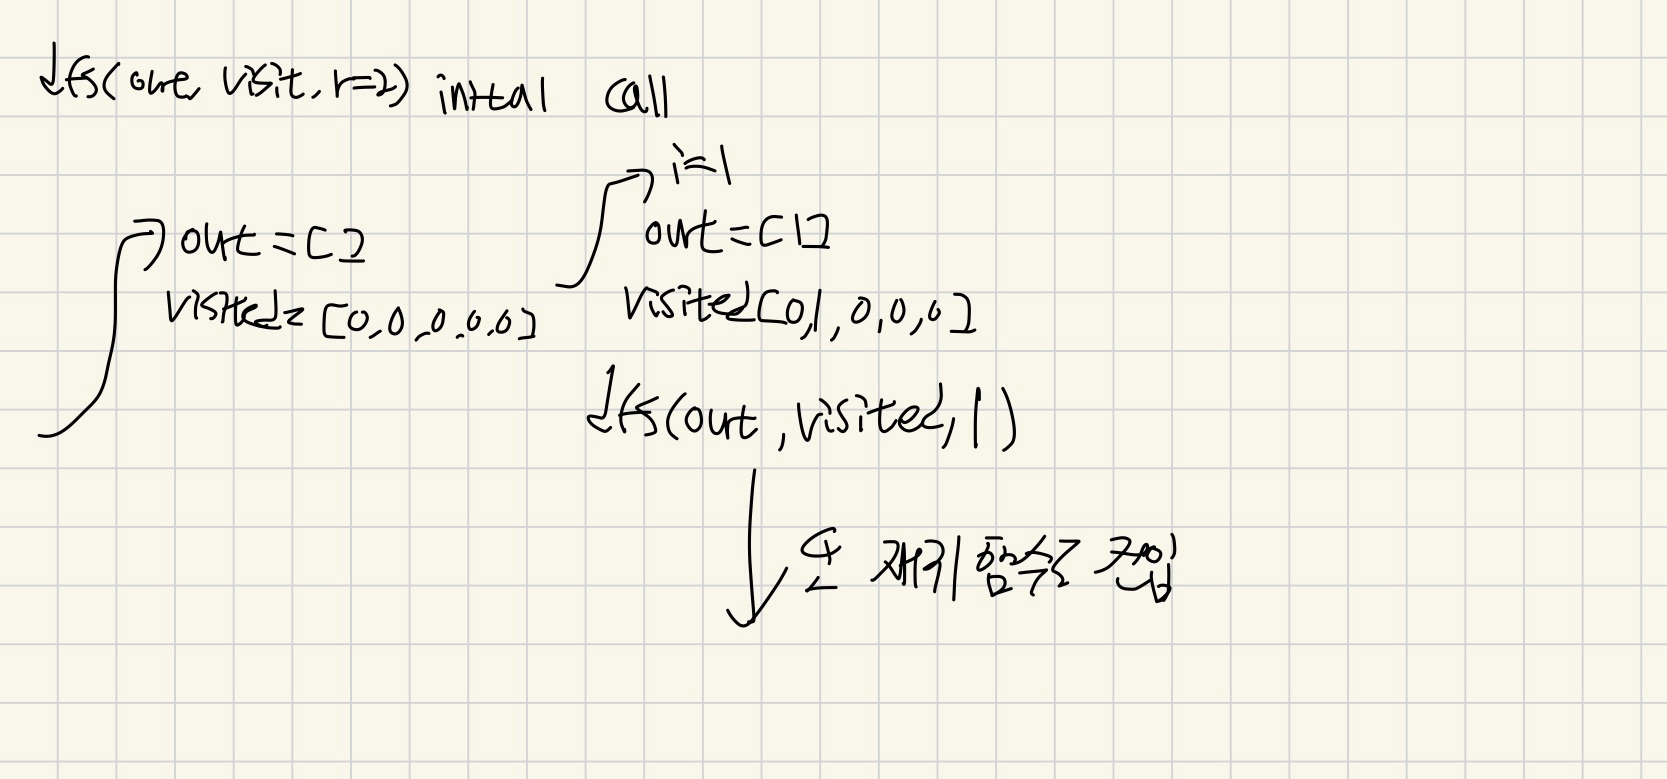 dfs(out, visit, r=2) initial call
i=1
out=[]
out=[1]
visited=[0,0,0,0,0]
visited[0,1,0,0,0]
dfs(out, visited, 1)
또 재귀 함수로 진입